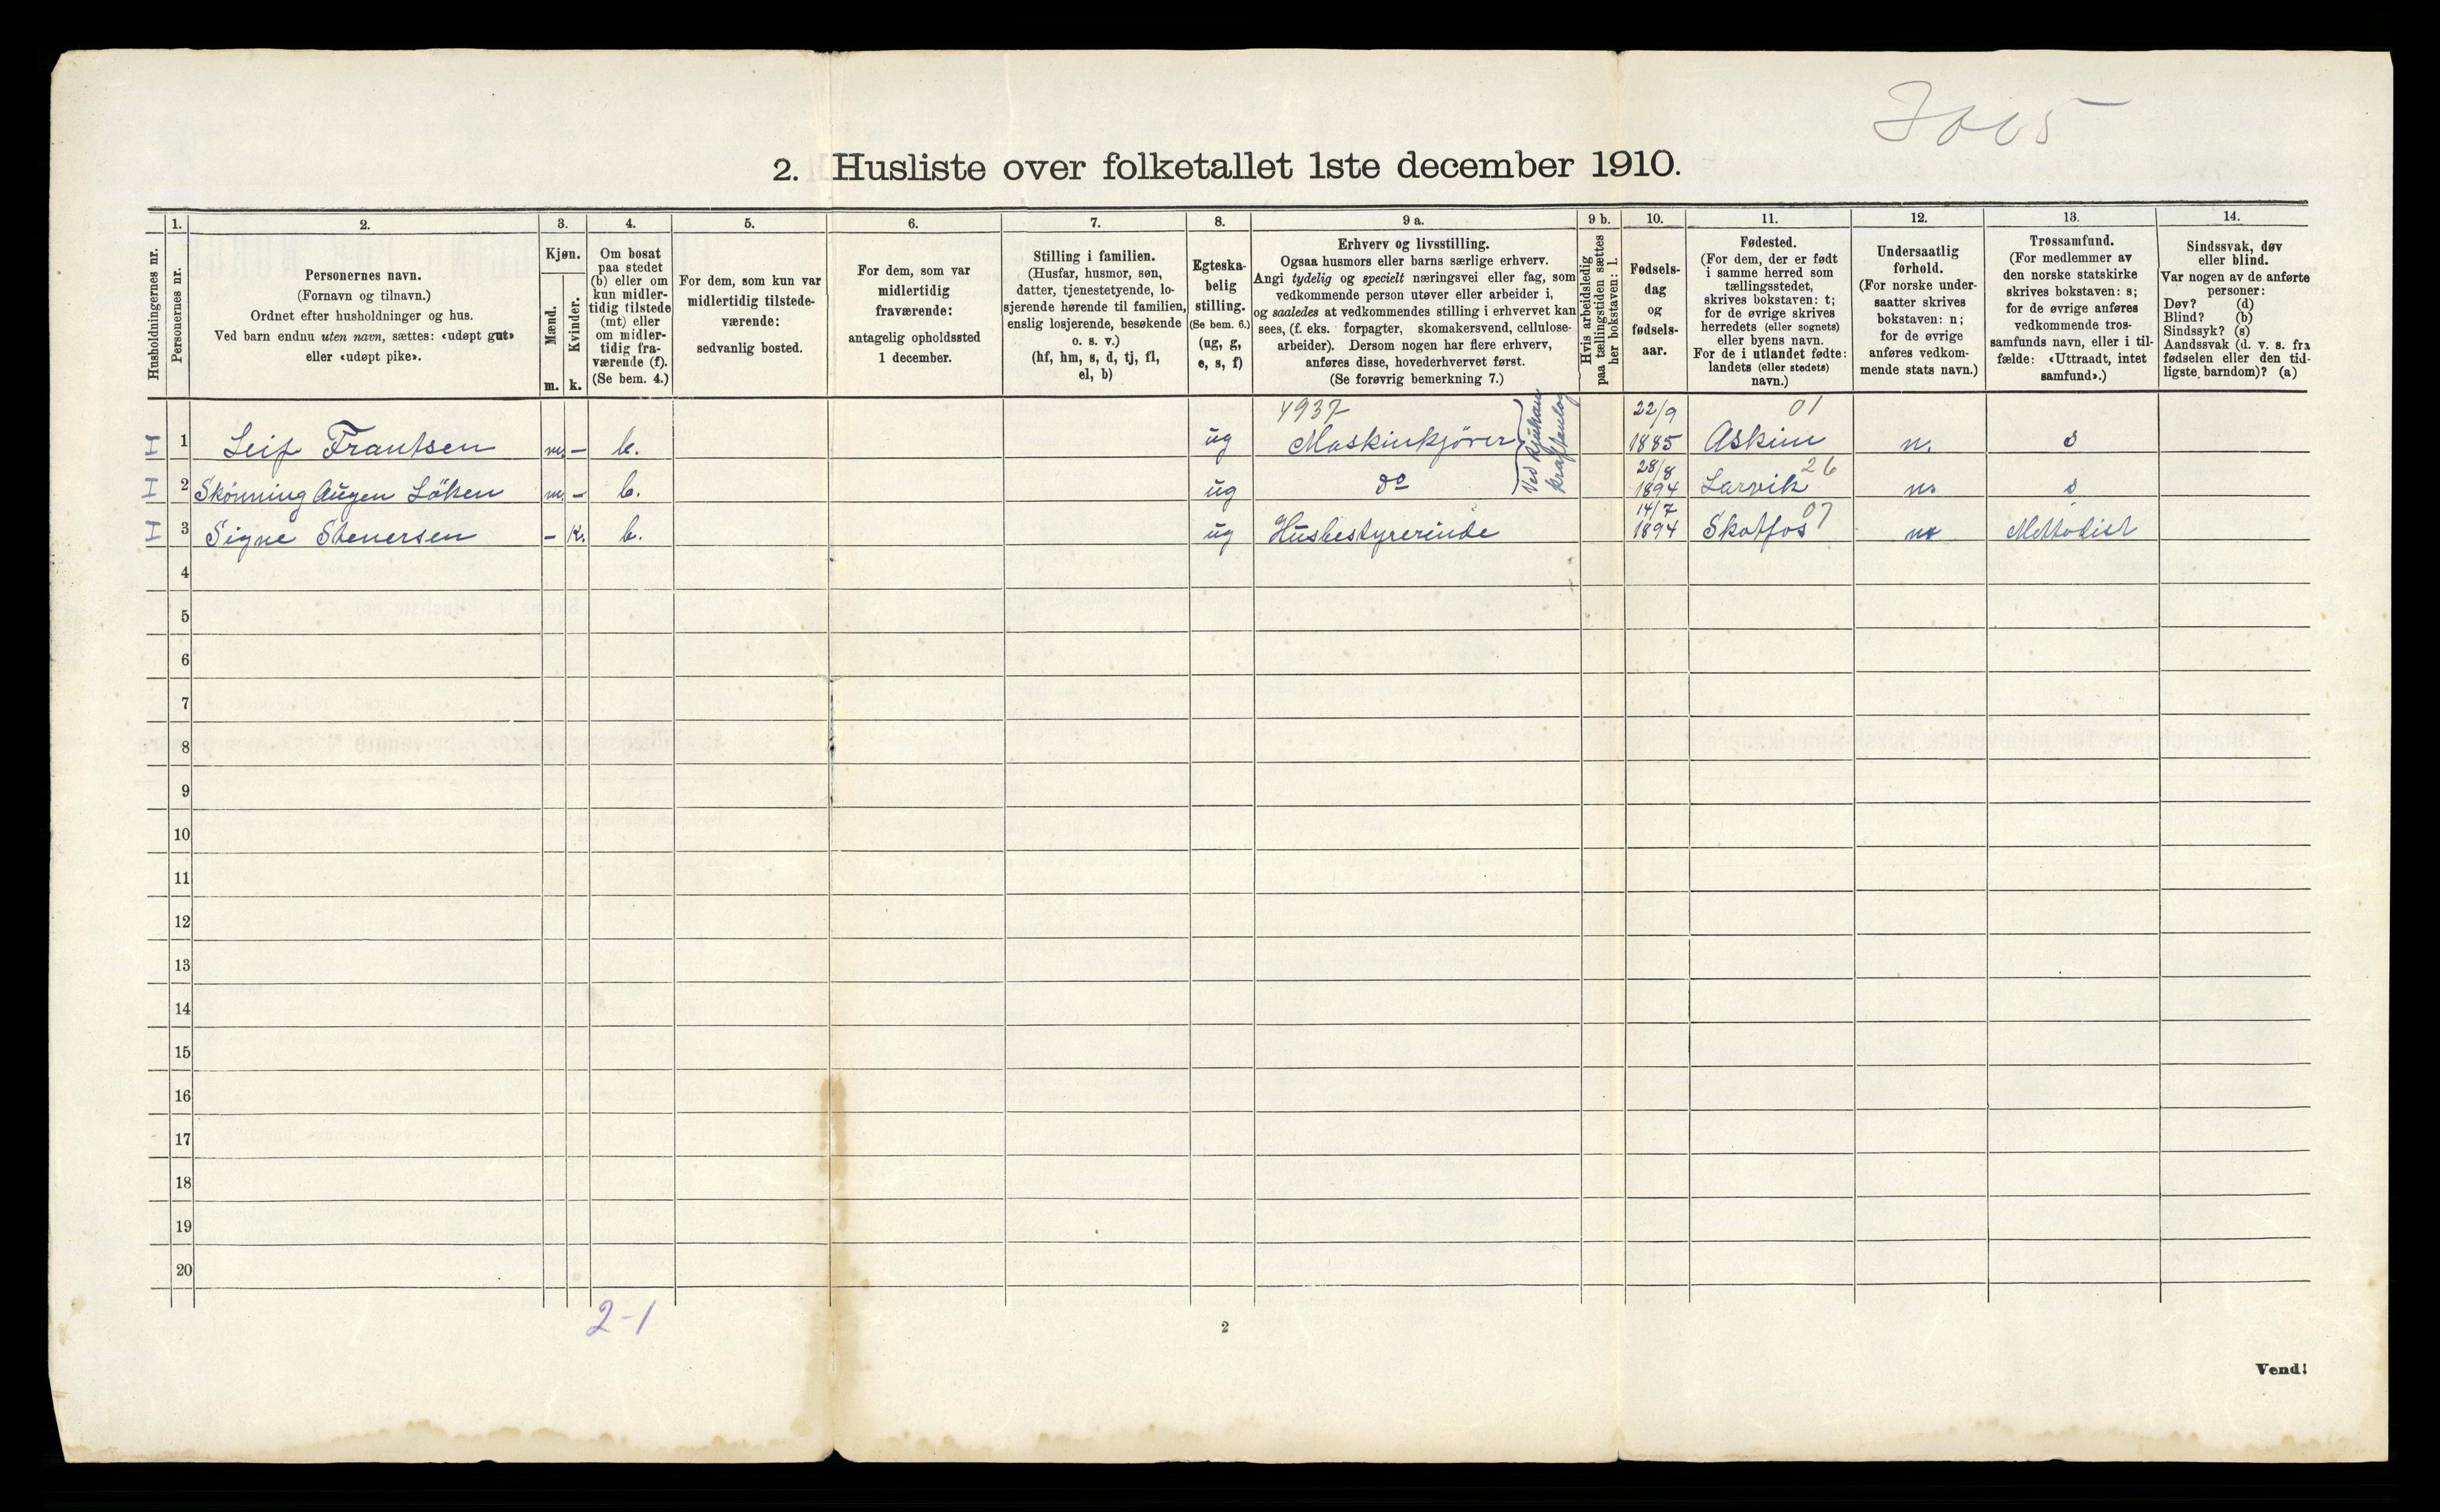 2. Husliste over folketallet 1ste december 1910.
1. 2. 3. 4. 5. 6. 7. 8. 9 a. 9 b. 10. 11. 12. 13. 14.
Husholdningernes nr.
Personernes nr.
Personernes navn.
(Fornavn og tilnavn.)
Ordnet efter husholdninger og hus.
Ved barn endnu uten navn, sættes: «udøpt gut»
eller «udøpt pike».
Kjøn.
Mænd.
Kvinder.
m. k.
Om bosat
paa stedet
(b) eller om
kun midler-
tidig tilstede
(mt) eller
om midler-
tidig fra-
værende (f).
(Se bem. 4.)
For dem, som kun var
midlertidig tilstede-
værende:
sedvanlig bosted.
For dem, som var
midlertidig
fraværende:
antagelig opholdssted
1 december.
Stilling i familien.
(Husfar, husmor, søn,
datter, tjenestetyende, lo-
sjerende hørende til familien,
enslig losjerende, besøkende
o. s. v.)
(hf, hm, s, d, tj, fl,
el, b)
Egteska-
belig
stilling.
(Se bem. 6.)
(ug, g,
e, s, f)
Erhverv og livsstilling.
Ogsaa husmors eller barns særlige erhverv.
Angi tydelig og specielt næringsvei eller fag, som
vedkommende person utøver eller arbeider i,
og saaledes at vedkommendes stilling i erhvervet kan
sees, (f. eks. forpagter, skomakersvend, cellulose-
arbeider). Dersom nogen har flere erhverv,
anføres disse, hovederhvervet først.
(Se forøvrig bemerkning 7.)
Hvis arbeidsledig
paa tællingstiden sættes
her bokstaven: l.
Fødsels-
dag
og
fødsels-
aar.
Fødested.
(For dem, der er født
i samme herred som
tællingsstedet,
skrives bokstaven: t;
for de øvrige skrives
herredets (eller sognets)
eller byens navn.
For de i utlandet fødte:
landets (eller stedets)
navn.)
Undersaatlig
forhold.
(For norske under-
saatter skrives
bokstaven: n;
for de øvrige
anføres vedkom-
mende stats navn.)
Trossamfund.
(For medlemmer av
den norske statskirke
skrives bokstaven: s;
for de øvrige anføres
vedkommende tros-
samfunds navn, eller i til-
fælde: «Uttraadt, intet
samfund».)
Sindssvak, døv
eller blind.
Var nogen av de anførte
personer:
Døv? (d)
Blind? (b)
Sindssyk? (s)
Aandssvak (d. v. s. fra
fødselen eller den tid-
ligste barndom)? (a)
4937 22/9 01
I 1 Leif Frantsen m. - b. ug Maskinkjører 1885 Askim n. s
Ved Rjukan
kraftanlæg
28/8 26
I 2 Skönning Augen Löken m. - b. ug do 1894 Larvik n. s
14/7 07
I 3 Signe Stenersen - k. b. ug Husbestyrerinde 1894 Skotfos n. Methodist
4
5
6
7
8
9
10
11
12
13
14
15
16
17
18
19
20
2-1
2
Vend!